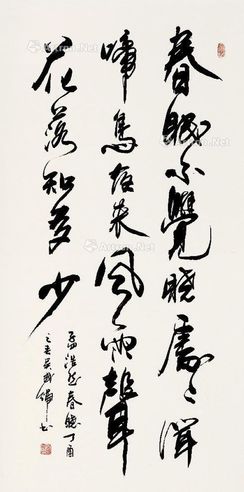 春眠不覺曉處々聞
啼鳥夜來風雨聲
花落知多少
孟浩然春曉丁酉
Artron.Net